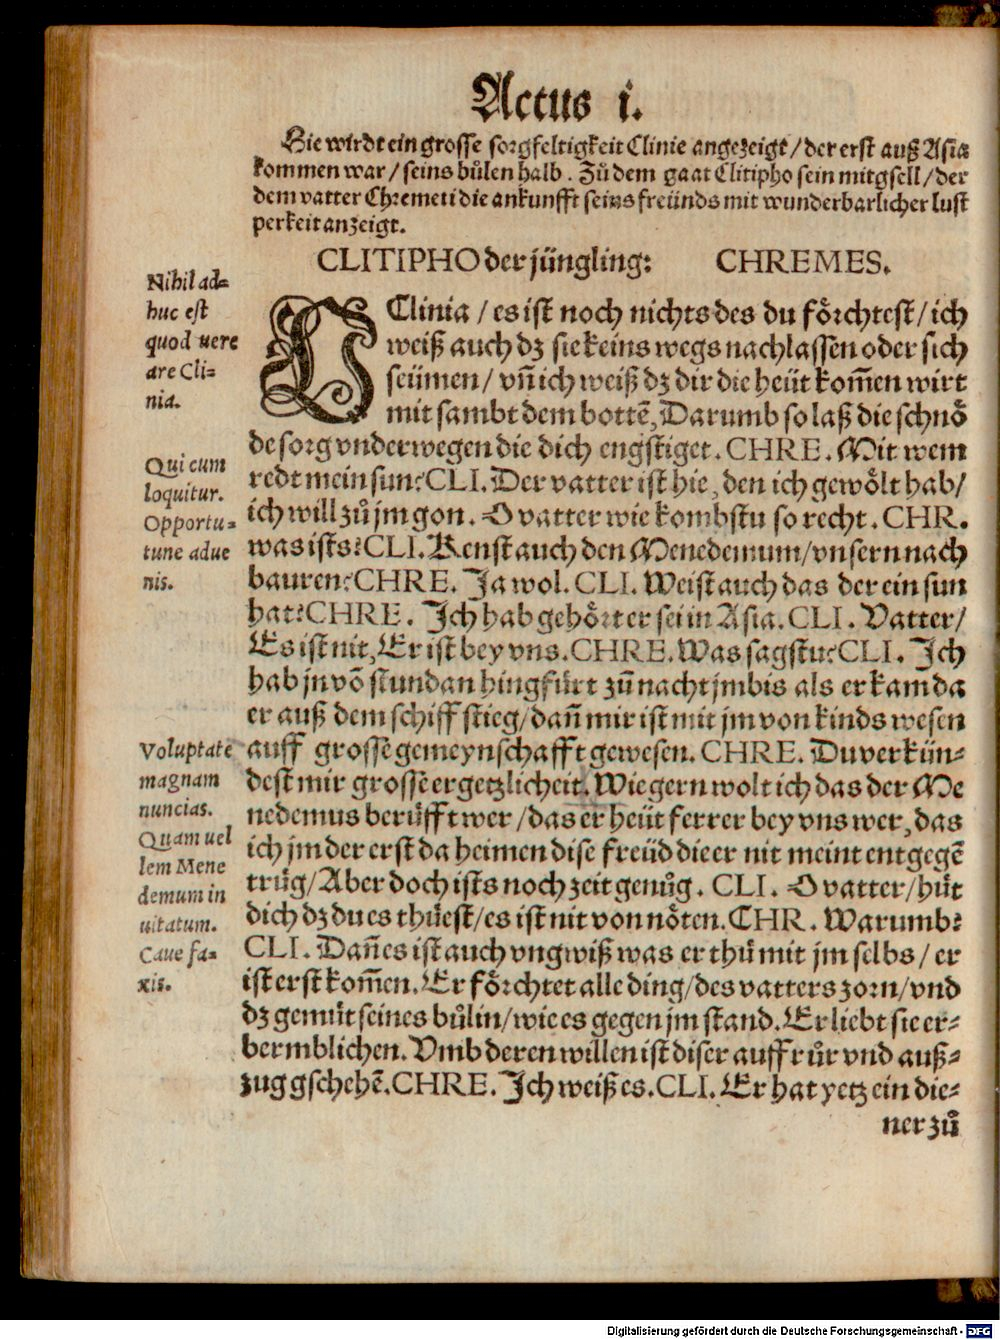 Actus i.
Hie wirdt ein grosse sorgfeltigkeit Clinie angezeigt / der erst auß Asia
kommen war / seins bůlen halb. Zů dem gaat Clitipho sein mitgsell / der
dem vatter Chremeti die ankunfft seins freünds mit wunderbarlicher lust
perkeit anzeigt.
CLITIPHO der jüngling: CHREMES.
Nihil ad=
huc est
quod uere
are Cli=
nia.
O Clinia / es ist noch nichts des du fo͂rchtest / ich
weiß auch dz sie keins wegs nachlassen oder sich
seümen / vñ ich weiß dz dir die heüt kom̃en wirt
mit sambt dem bottẽ, Darumb so laß die schno͂
de sorg vnderwegen die dich engstiget. CHRE. Mit wem
redt mein sun? CLI. Der vatter ist hie, den ich gewo͂lt hab /
ich will zů jm gon. O vatter wie kombstu so recht. CHR.
was ists? CLI. Kenst auch den Menedemum / vnsern nach
bauren? CHRE. Ja wol. CLI. Weist auch das der ein sun
hat? CHRE. Ich hab geho͂rt er sei in Asia. CLI. Vatter /
Es ist nit, Er ist bey vns. CHRE. Was sagstu? CLI. Ich
hab jn võ stundan hingfürt zů nachtjmbis als er kam da
er auß dem schiff stieg / dañ mir ist mit jm von kinds wesen
auff grosse gemeynschafft gewesen. CHRE. Du verkün=
dest mir grossẽ ergetzlicheit. Wie gern wolt ich das der Me
nedemus berüfft wer / das er heüt ferrer bey vns wer, das
ich jm der erst da heimen dise freüd die er nit meint entgegẽ
trüg / Aber doch ists noch zeit genůg. CLI. O vatter / hüt
dich dz du es thüest / es ist nit von no͂ten. CHR. Warumb?
CLI. Dañ es ist auch vngwiß was er thü mit jm selbs / er
ist erst kom̃en. Er fo͂rchtet alle ding / des vatters zorn / vnd
dz gemüt seines bůlin / wie es gegen jm stand. Er liebt sie er=
bermblichen. Vmb deren willen ist diser auffrůr vnd auß=
zug gschehẽ. CHRE. Ich weiß es. CLI. Er hat yetz ein die=
ner zů
Qui cum
loquitur.
Opportu=
tune adue
nis.
Voluptate
magnam
nuncias.
Quam uel
lem Mene
demum in
uitatum.
Caue fa=
xis.
Digitalisierung gefördert durch die Deutsche Forschungsgemeinschaft - DFG